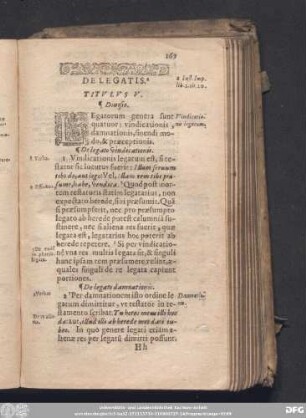 267
DE LEGATIS.
a Inst. Imp.
lib. 2. tit. 20.
TITVLVS V.
¶ Diuisio.
LEgatorum genera sunt
quatuor: vindicationis,
damnationis, sinendi mo
do, & præceptionis.
¶ De legato vindicationis.
1 Vindicationis legatum est, si te-
stator sic locutus fuerit: illam fremitem
tibi do, aut lego: Vel, illam rem tibi præ-
sume, habe, vendica. Quod post mor-
tem testatoris statim legatarius, non
expectato herede, sibi præsumit. Quæ
si præsumpserit, nec pro præsumpto
legato ab herede potest calumniam su-
stinere, nec si aliena res fuerit, quæ
legata est, legatarius hoc poterit ab
herede repetere. Si per vindicatio-
nem vna res multis legata sit, & singuli
hanc ipsam rem præsumere velint, æ-
quales singuli de re legata capiunt
portiones.
¶ De legato damnationis.
2 Per damnationem isto ordine le-
gatum dimittitur, ut testator in te-
stamento scribat: Tu heres meus illi hoc
dato: vt, illud illi ab herede meo dari iu-
beo. In quo genere legati etiam a-
lienæ res per legatū dimitti possunt.
Hh